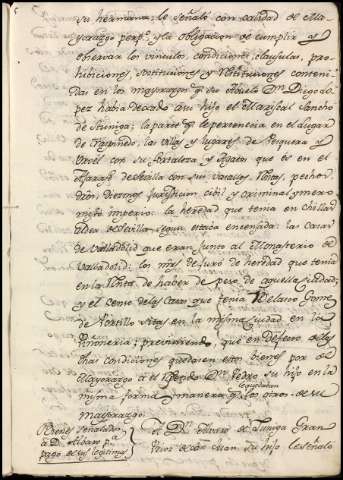 su hermana: le señaló con calidad de Ma-
yorazgo perp.º y la obligacion de cumplir y
obserbar los vinculos, condiciones, clausulas, pro-
hibiciones, Sostituciones y Restituciones conteni-
das en los mayorazgos q.e su Abuelo D.n Diego Lo-
pez habia dexado a su hijo el Mariscal Sancho
de Stuñiga: la parte q.e le pertenecia en el Lugar
de las villas y lugares de Pesquera y
con su fortaleza y que es en el
de Sevilla con sus vasallos, Rentas, pechos,
dros, diezmos, Jurisdicion civil y criminal mero
misto imperio: la heredad que tenia en
de Sevilla segun estaba encensada: las casas
de Valladolid que eran junto al Monasterio de
Valladolid: los mrs de Juro de heredad que tenia
en la Renta de haber de peso de aquella ciudad;
y el censo de las casas que tenia Gome
de Portillo sitas en la misma ciudad en la
: previniendo, que en Defecto de las
dhas condiciones quedasen estos bienes por de
Mayorazgo á el D.n Pedro su hijo en la
misma forma y manera q.e los otros de su
mayorazgo.
Bienes señalados
á D. Albaro p.a
pago de sus legitimas
El D.n Albaro de Zuñiga Gran
Prior de S.n Juan su hijo le señaló